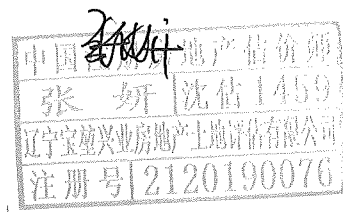 中国 地产估价师
张 妍 沈估1459
辽宁宝堃兴业房地产土地评估有限公司
注册号 2120190076